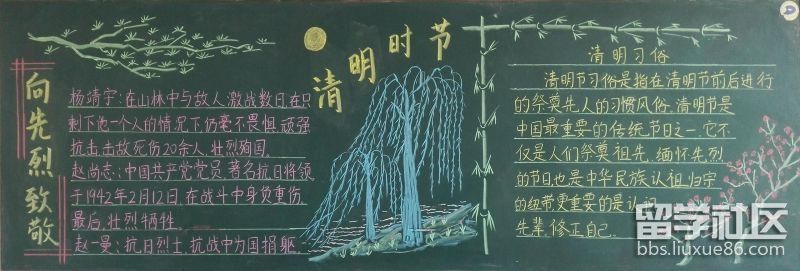 向先烈致敬
杨靖宇：在山林中与故人激战数日，在只
剩下他一个人的情况下仍毫不畏惧，顽强
抗击，击故死伤20余人，壮烈殉国。
赵尚志：中国共产党党员，著名抗日将领
于1942年2月12日，在战斗中身负重伤，
最后，壮烈牺牲。
赵一曼：抗日烈士，抗战中为国捐躯。
清明时节
清明习俗
清明节习俗是指在清明节前后进行
的祭奠先人的习惯风俗。清明节是
中国最重要的传统节日之一。它不
仅是人们祭奠祖先，缅怀先烈
的节日也是中华民族认祖归宗
的纽带更重要的是认识
先辈，修正自己。
留学社区
bbs.liuxue86.com